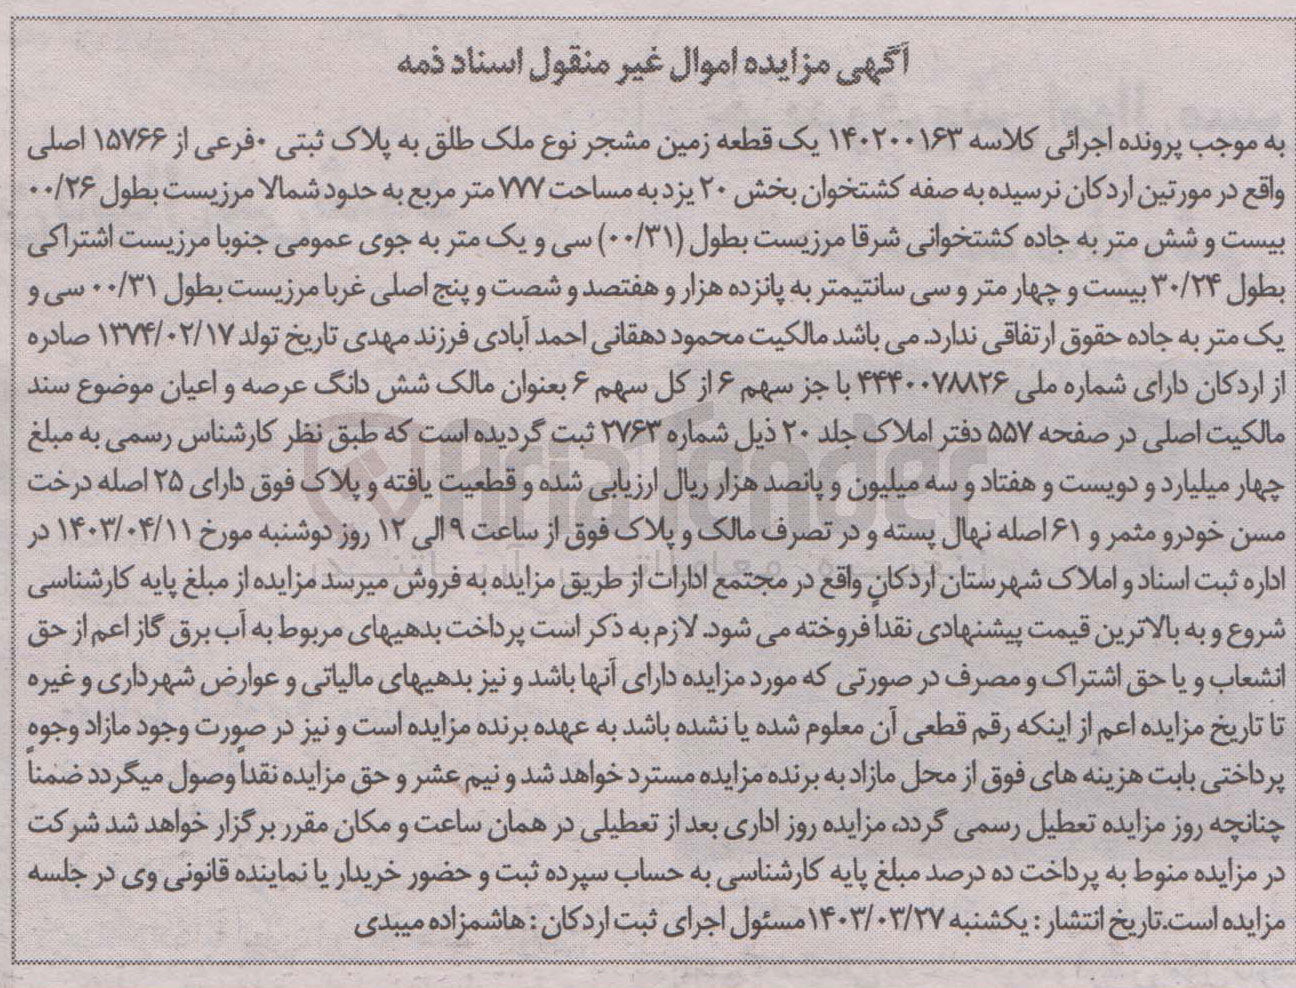 آگهی مزایده اموال غیر منقول اسناد ذمه
به موجب پرونده اجرائی کلاسه ۱۴۰۲۰۰۱۶۳ یک قطعه زمین مشجر نوع ملک طلق به پلاک ثبتی ۰فرعی از ۱۵۷۶۶ اصلی
واقع در مورتین اردکان نرسیده به صفه کشتخوان بخش ۲۰ یزد به مساحت ۷۷۷ متر مربع به حدود شمالا مرزیست بطول ۰۰/۲۶
بیست و شش متر به جاده کشتخوانی شرقا مرزیست بطول (۰۰/۳۱) سی و یک متر به جوی عمومی جنوبا مرزیست اشتراکی
بطول ۳۰/۲۴ بیست و چهار متر و سی سانتیمتر به پانزده هزار و هفتصد و شصت و پنج اصلی غربا مرزیست بطول ۰۰/۳۱ سی و
یک متر به جاده حقوق ارتفاقی ندارد. می باشد مالکیت محمود دهقانی احمد آبادی فرزند مهدی تاریخ تولد ۱۳۷۴/۰۲/۱۷ صادره
از اردکان دارای شماره ملی ۴۴۴۰۰۷۸۸۲۶ با جز سهم ۶ از کل سهم ۶ بعنوان مالک شش دانگ عرصه و اعیان موضوع سند
مالکیت اصلی در صفحه ۵۵۷ دفتر املاک جلد ۲۰ ذیل شماره ۲۷۶۳ ثبت گردیده است که طبق نظر کارشناس رسمی به مبلغ
چهار میلیارد و دویست و هفتاد و سه میلیون و پانصد هزار ریال ارزیابی شده و قطعیت یافته و پلاک فوق دارای ۲۵ اصله درخت
مسن خودرو مثمر و ۶۱ اصله نهال پسته و در تصرف مالک و پلاک فوق از ساعت ۹ الی ۱۲ روز دوشنبه مورخ ۱۴۰۳/۰۴/۱۱ در
اداره ثبت اسناد و املاک شهرستان اردکان واقع در مجتمع ادارات از طریق مزایده به فروش میرسد مزایده از مبلغ پایه کارشناسی
شروع و به بالاترین قیمت پیشنهادی نقداً فروخته می شود. لازم به ذکر است پرداخت بدهیهای مربوط به آب برق گاز اعم از حق
انشعاب و یا حق اشتراک و مصرف در صورتی که مورد مزایده دارای آنها باشد و نیز بدهیهای مالیاتی و عوارض شهرداری و غیره
تا تاریخ مزایده اعم از اینکه رقم قطعی آن معلوم شده یا نشده باشد به عهده برنده مزایده است و نیز در صورت وجود مازاد وجوه
پرداختی بابت هزینه های فوق از محل مازاد به برنده مزایده مسترد خواهد شد و نیم عشر و حق مزایده نقداً وصول میگردد ضمناً
چنانچه روز مزایده تعطیل رسمی گردد، مزایده روز اداری بعد از تعطیلی در همان ساعت و مکان مقرر برگزار خواهد شد شرکت
در مزایده منوط به پرداخت ده درصد مبلغ پایه کارشناسی به حساب سپرده ثبت و حضور خریدار یا نماینده قانونی وی در جلسه
مزایده است.تاریخ انتشار : یکشنبه ۱۴۰۳/۰۳/۲۷ مسئول اجرای ثبت اردکان : هاشمزاده میبدی
AriaTender